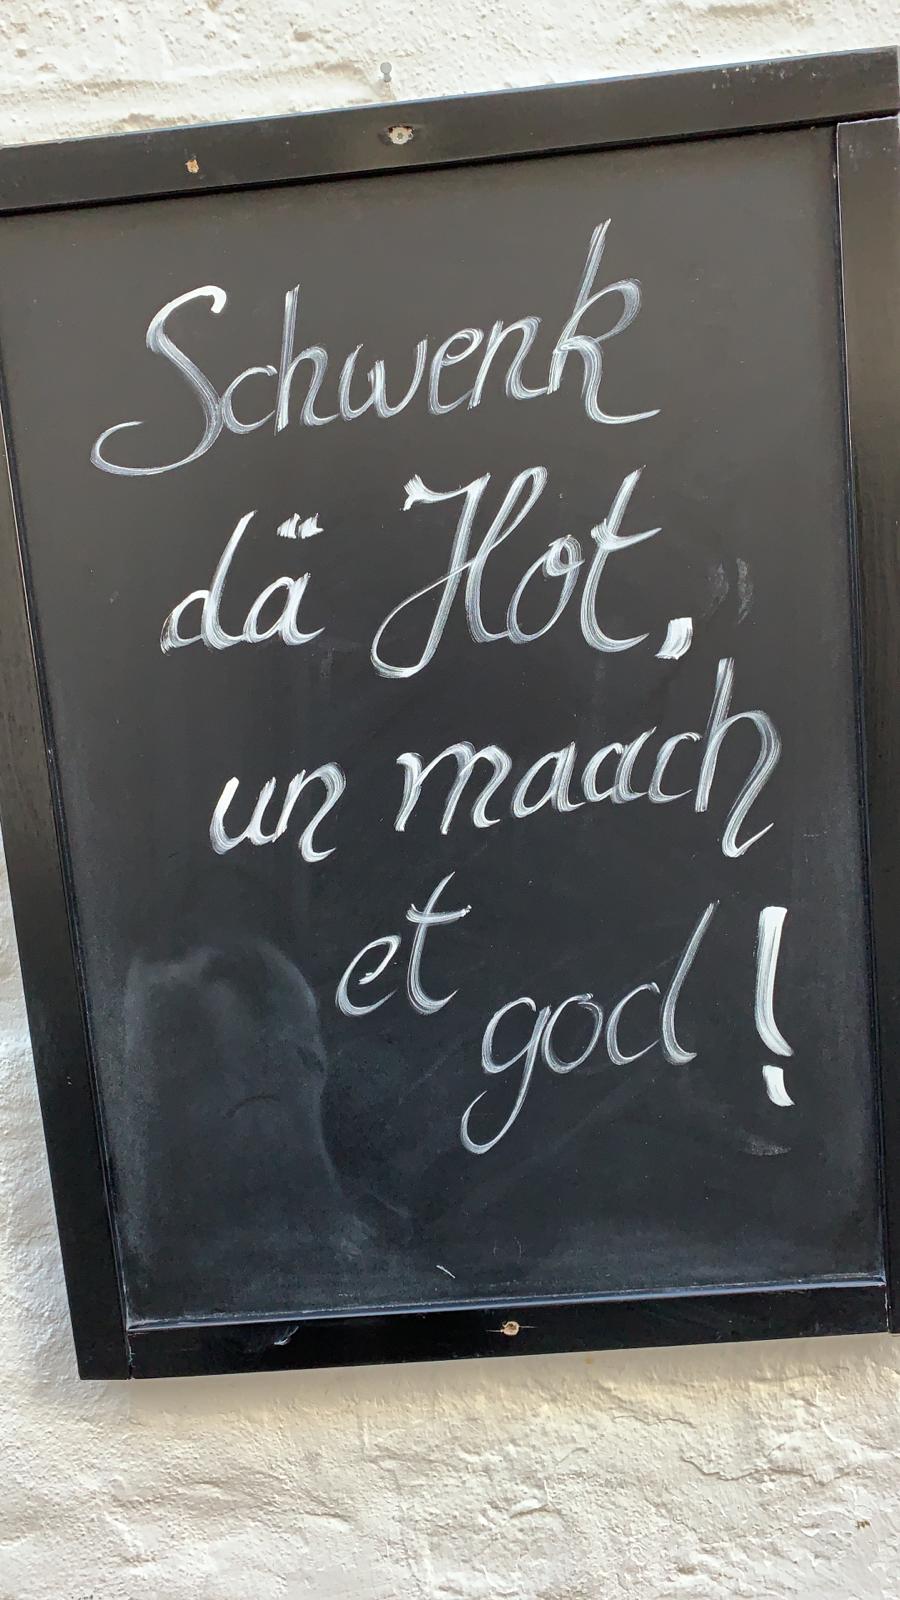 Schwenk
dä Hot,
un maach
et
god!